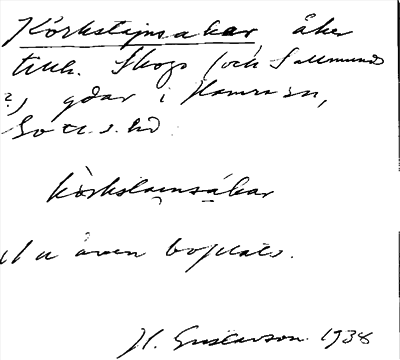 Körkstajnsakar åker
tillh. Skogs (och Sallmunds
?), gdar i Hamra sn,
Gotl.s. hd
körkstainsåkar
Nu även boplats.
H. Gustavson 1938